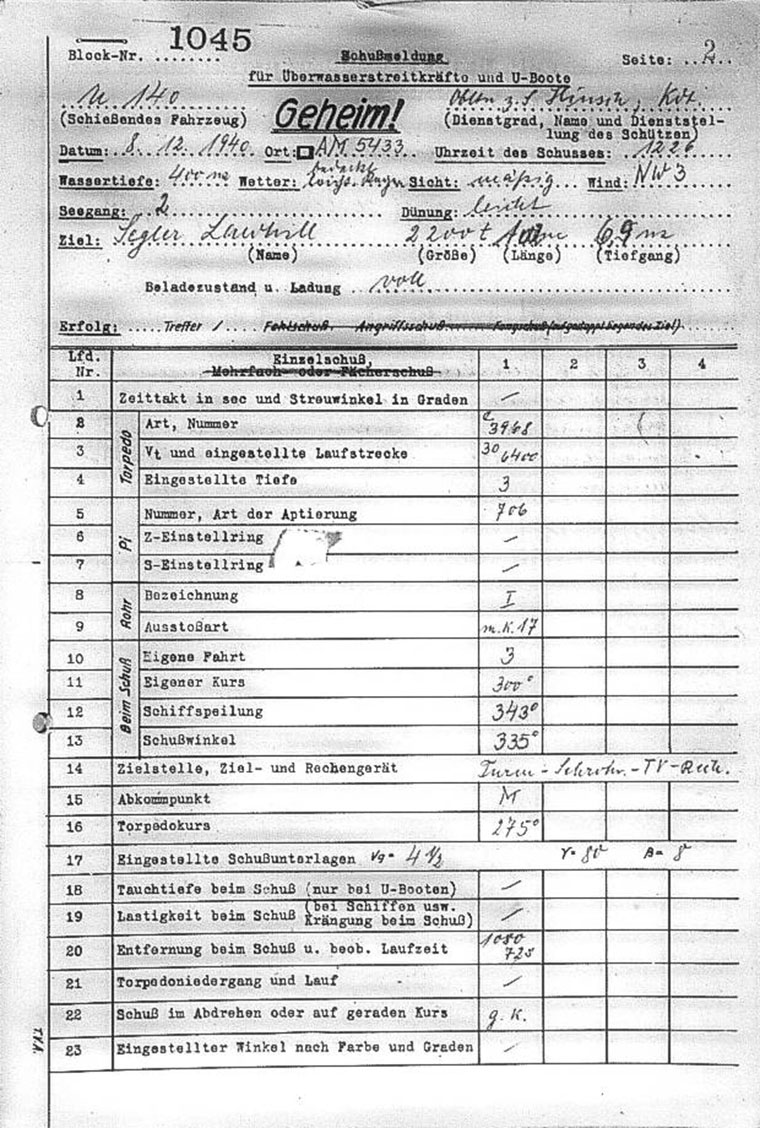 1045
Block-Nr. ........
Schußmeldung
Seite: ..2..
für Überwasserstreitkräfte und U-Boote
U 140
Geheim!
Obltn z. S. Hinsch, Kdt.
(Schießendes Fahrzeug)
(Dienstgrad, Name und Dienststel-
lung des Schützen)
Datum: 8.12.1940. Ort: AM 5433 Uhrzeit des Schusses: 1226
Wassertiefe: 400 m Wetter: bedeckt Sicht: mäßig Wind: NW 3
Seegang: 2 Dünung: leicht
Ziel: Segler 2200 t 6,9 m
(Name) (Größe) (Länge) (Tiefgang)
Beladezustand u. Ladung .. voll
Erfolg: ..... Treffer / ... Fehlschuß. Angriffsschuß
Lfd. Nr. Einzelschuß, 1 2 3 4
Mehrfach- oder Fächerschuß
1 Zeittakt in sec und Streuwinkel in Graden —
Torpedo
2 Art, Nummer e 3968
3 Vt und eingestellte Laufstrecke 30 6400
4 Eingestellte Tiefe 3
Pi
5 Nummer, Art der Aptierung 706
6 Z-Einstellring —
7 S-Einstellring —
Rohr
8 Bezeichnung I
9 Ausstoßart m.K.17
Beim Schuß
10 Eigene Fahrt 3
11 Eigener Kurs 300°
12 Schiffspeilung 343°
13 Schußwinkel 335°
14 Zielstelle, Ziel- und Rechengerät Turm - Sehrohr. - TV - Rech.
15 Abkommpunkt M
16 Torpedokurs 275°
17 Eingestellte Schußunterlagen Vg= 4 1/2 γ= 80 B= 8
18 Tauchtiefe beim Schuß (nur bei U-Booten) —
19 Lastigkeit beim Schuß (bei Schiffen usw. Krängung beim Schuß) —
20 Entfernung beim Schuß u. beob. Laufzeit 1080 72s
21 Torpedoniedergang und Lauf —
22 Schuß im Abdrehen oder auf geraden Kurs g. K.
23 Eingestellter Winkel nach Farbe und Graden —